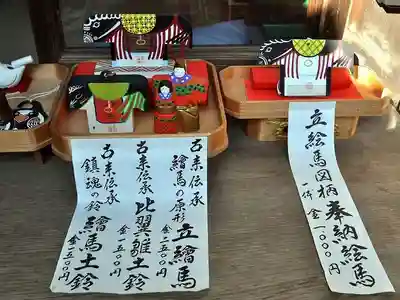 古来伝承
繪馬の原形
立繪馬
金二〇〇〇円
古来伝承
比翼雛土鈴
金一五〇〇円
古来伝承
鎮魂の鈴
繪馬土鈴
金一五〇〇円
立絵馬図柄
奉納絵馬
一体 金一〇〇〇円